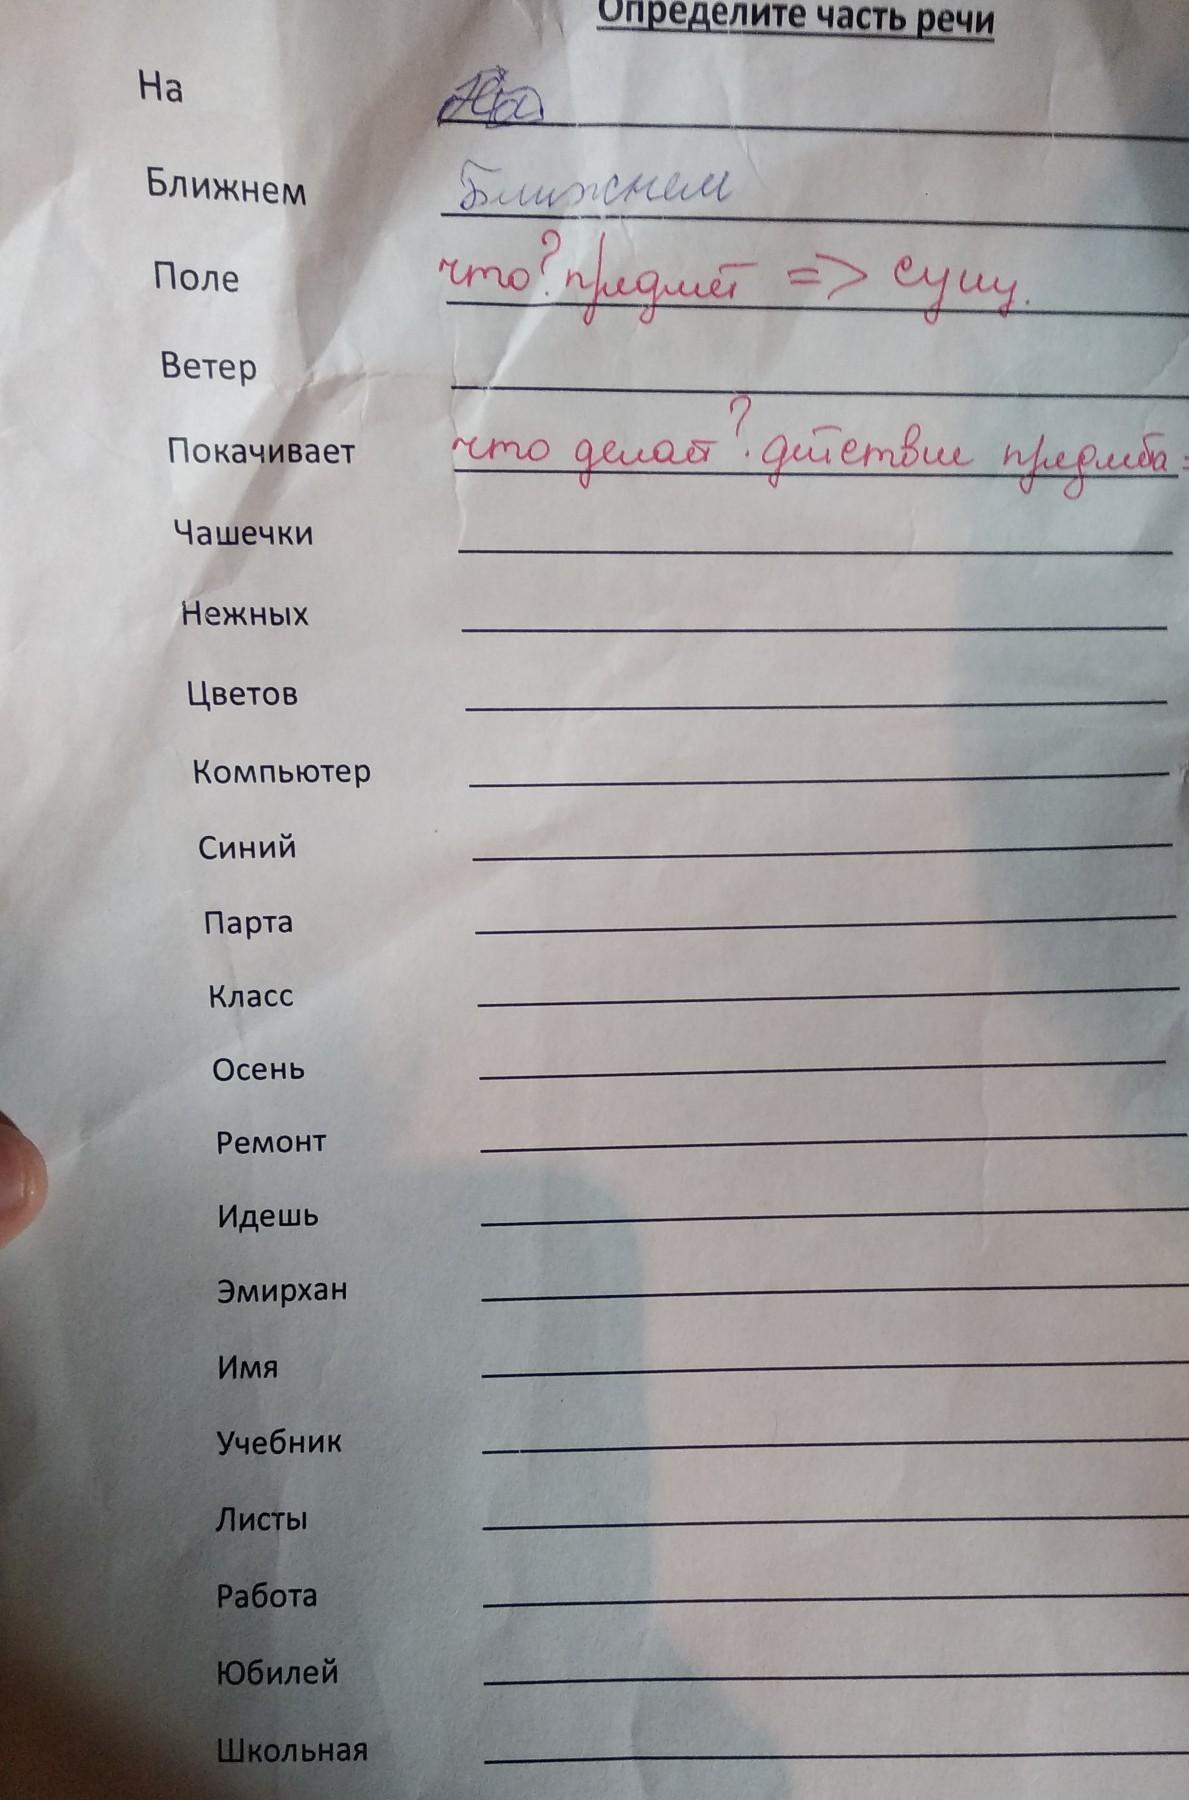 Определите часть речи
На На
Ближнем Ближнем
Поле что? предмет => сущ.
Ветер
Покачивает что делает? действие предмета =
Чашечки
Нежных
Цветов
Компьютер
Синий
Парта
Класс
Осень
Ремонт
Идешь
Эмирхан
Имя
Учебник
Листы
Работа
Юбилей
Школьная